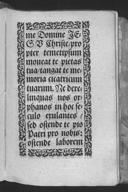 me Domine JE-
SU Christe, pro
pter temetipsum
moneat te pietas
tua tangat te me-
moria cicatricum
tuarum. Ne dere-
linquas nos or-
phanos in hoc se-
culo exulantes/
sed ostende te pio
Pater pro nobis:
ostende laborem